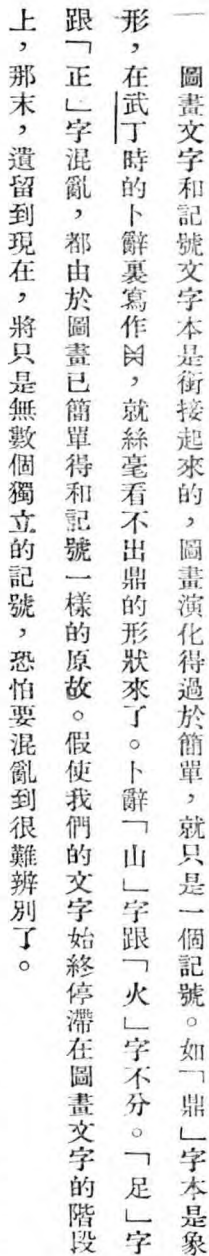 圖畫文字和記號文字本是銜接起來的，圖畫演化得過於簡單，就只是一個記號。如「鼎」字本是象
形，在武丁時的卜辭裏寫作，就絲毫看不出鼎的形狀來了。卜辭「山」字跟「火」字不分。「足」字
跟「正」字混亂，都由於圖畫已簡單得和記號一樣的原故。假使我們的文字始終停滯在圖畫文字的階段
上，那末，遺留到現在，將只是無數個獨立的記號，恐怕要混亂到很難辨別了。